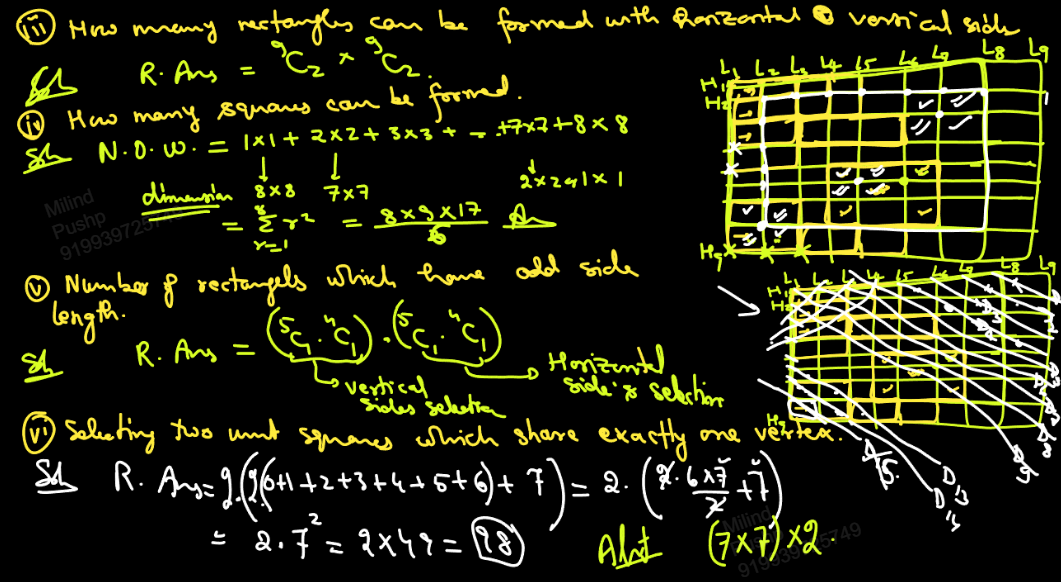 (iii) How many rectangles can be formed with horizontal & vertical side
Sol R. Ans = ⁹C₂ × ⁹C₂.
(iv) How many squares can be formed.
Sol N.O.W. = 1×1 + 2×2 + 3×3 + - - +7×7 + 8×8
dimension 8×8 7×7 2×2 1×1
= 8∑r=1 r² = 8×9×17/6 Ans
(v) Number of rectangels which have odd side
length.
Sol R. Ans = (⁵C₁ · ⁴C₁) · (⁵C₁ · ⁴C₁)
vertical
sides selection
Horizontal
side's selection
(vi) Selecting two unit squares which share exactly one vertex.
Sol R. Ans = 2·(2(0+1+2+3+4+5+6) + 7) = 2·(2·6×7/2 + 7)
= 2·7² = 2×49 = 98
Alnt (7×7)×2.
L₁ L₂ L₃ L₄ L₅ L₆ L₇ L₈ L₉
H₁
H₂
H₉
L₁ L₂ L₄ L₅ L₆ L₇ L₈ L₉
H₁
H₂
H₉
Milind
Pushp
Milind